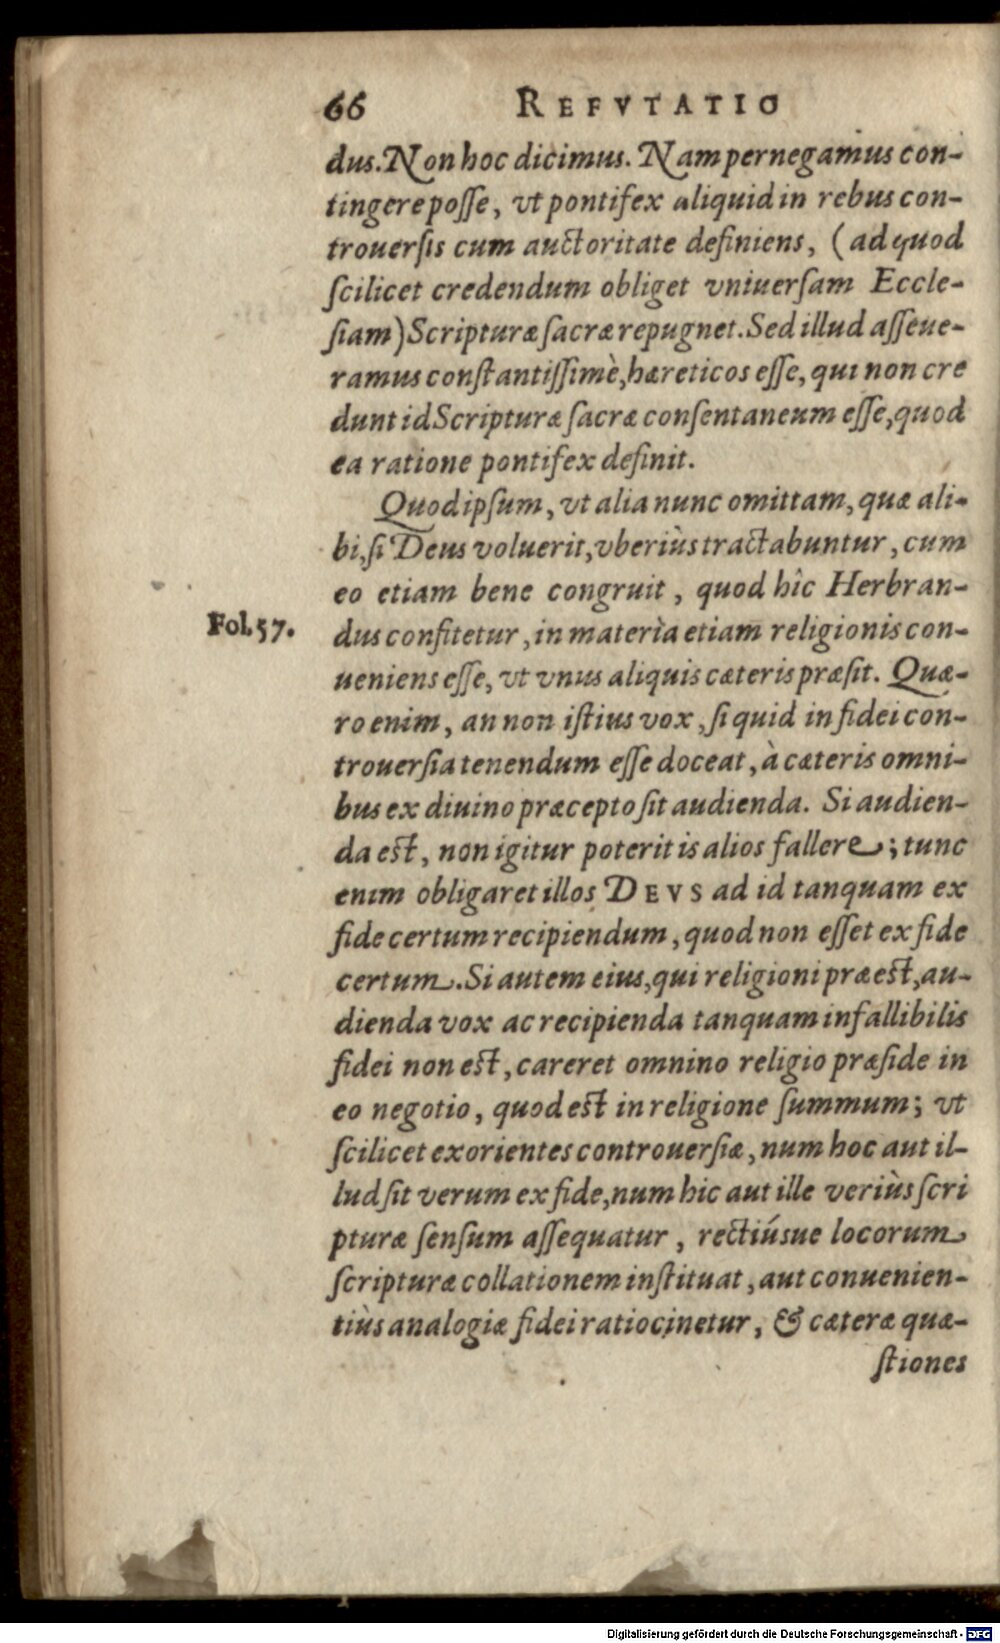 66 REFVTATIO
dus. Non hoc dicimus. Nam pernegamus con-
tingere posse, vt pontifex aliquid in rebus con-
trouersis cum auctoritate definiens, (ad quod
scilicet credendum obliget vniuersam Eccle-
siam) Scripturæ sacræ repugnet. Sed illud asseue-
ramus constantissimè, hæreticos esse, qui non cre
dunt id Scripturæ sacræ consentaneum esse, quod
ea ratione pontifex definit.
Quod ipsum, vt alia nunc omittam, quæ ali-
bi, si Deus voluerit, vberiùs tractabuntur, cum
eo etiam bene congruit, quod hîc Herbran-
Fol. 57.
dus confitetur, in materia etiam religionis con-
ueniens esse, vt vnus aliquis cæteris præsit. Quæ-
ro enim, an non istius vox, si quid in fidei con-
trouersia tenendum esse doceat, à cæteris omni-
bus ex diuino præcepto sit audienda. Si audien-
da est, non igitur poterit is alios fallere; tunc
enim obligaret illos DEVS ad id tanquam ex
fide certum recipiendum, quod non esset ex fide
certum. Si autem eius, qui religioni præest, au-
dienda vox ac recipienda tanquam infallibilis
fidei non est, careret omnino religio præside in
eo negotio, quod est in religione summum; vt
scilicet exorientes controuersiæ, num hoc aut il-
lud sit verum ex fide, num hic aut ille veriùs scri
pturæ sensum assequatur, rectiúsue locorum
scripturæ collationem instituat, aut conuenien-
tiùs analogiæ fidei ratiocinetur, & cæteræ quæ-
stiones
Digitalisierung gefördert durch die Deutsche Forschungsgemeinschaft - DFG